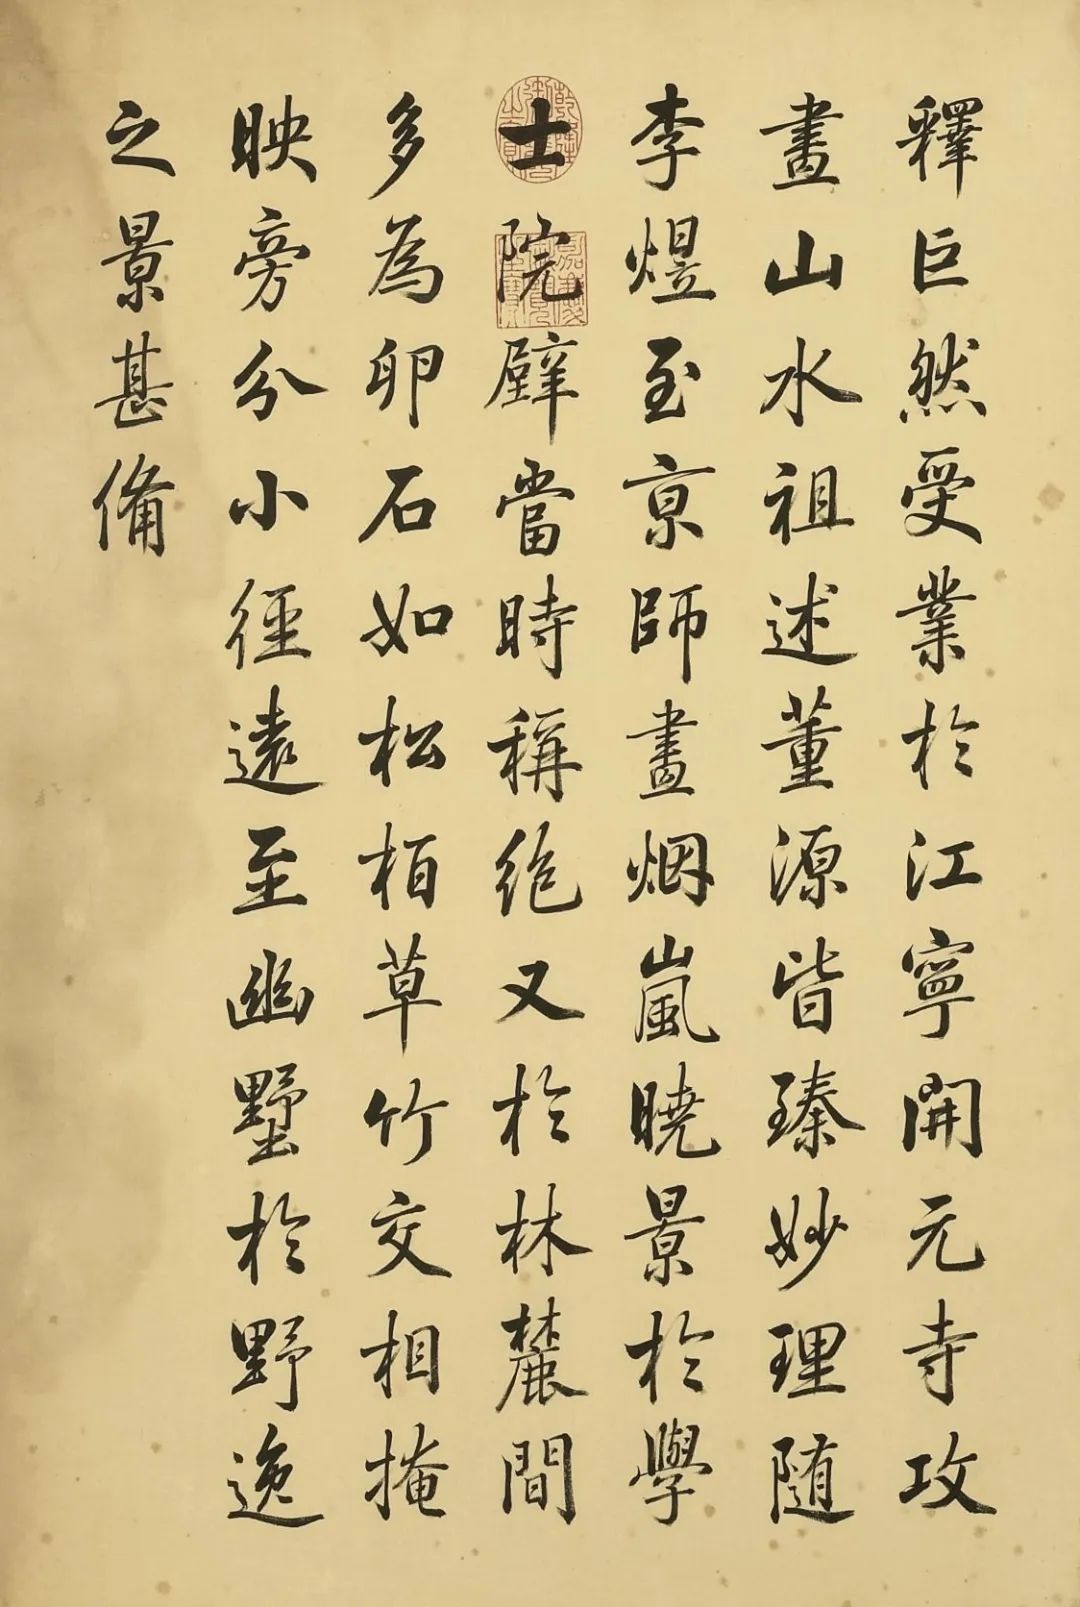 釋巨然受業於江寧開元寺攻
畫山水祖述董源皆臻妙理随
李煜至京師畫烟嵐曉景於學
士院壁當時稱絶又於林麓間
多為卵石如松柏草竹交相掩
映旁分小徑遠至幽墅於野逸
之景甚備